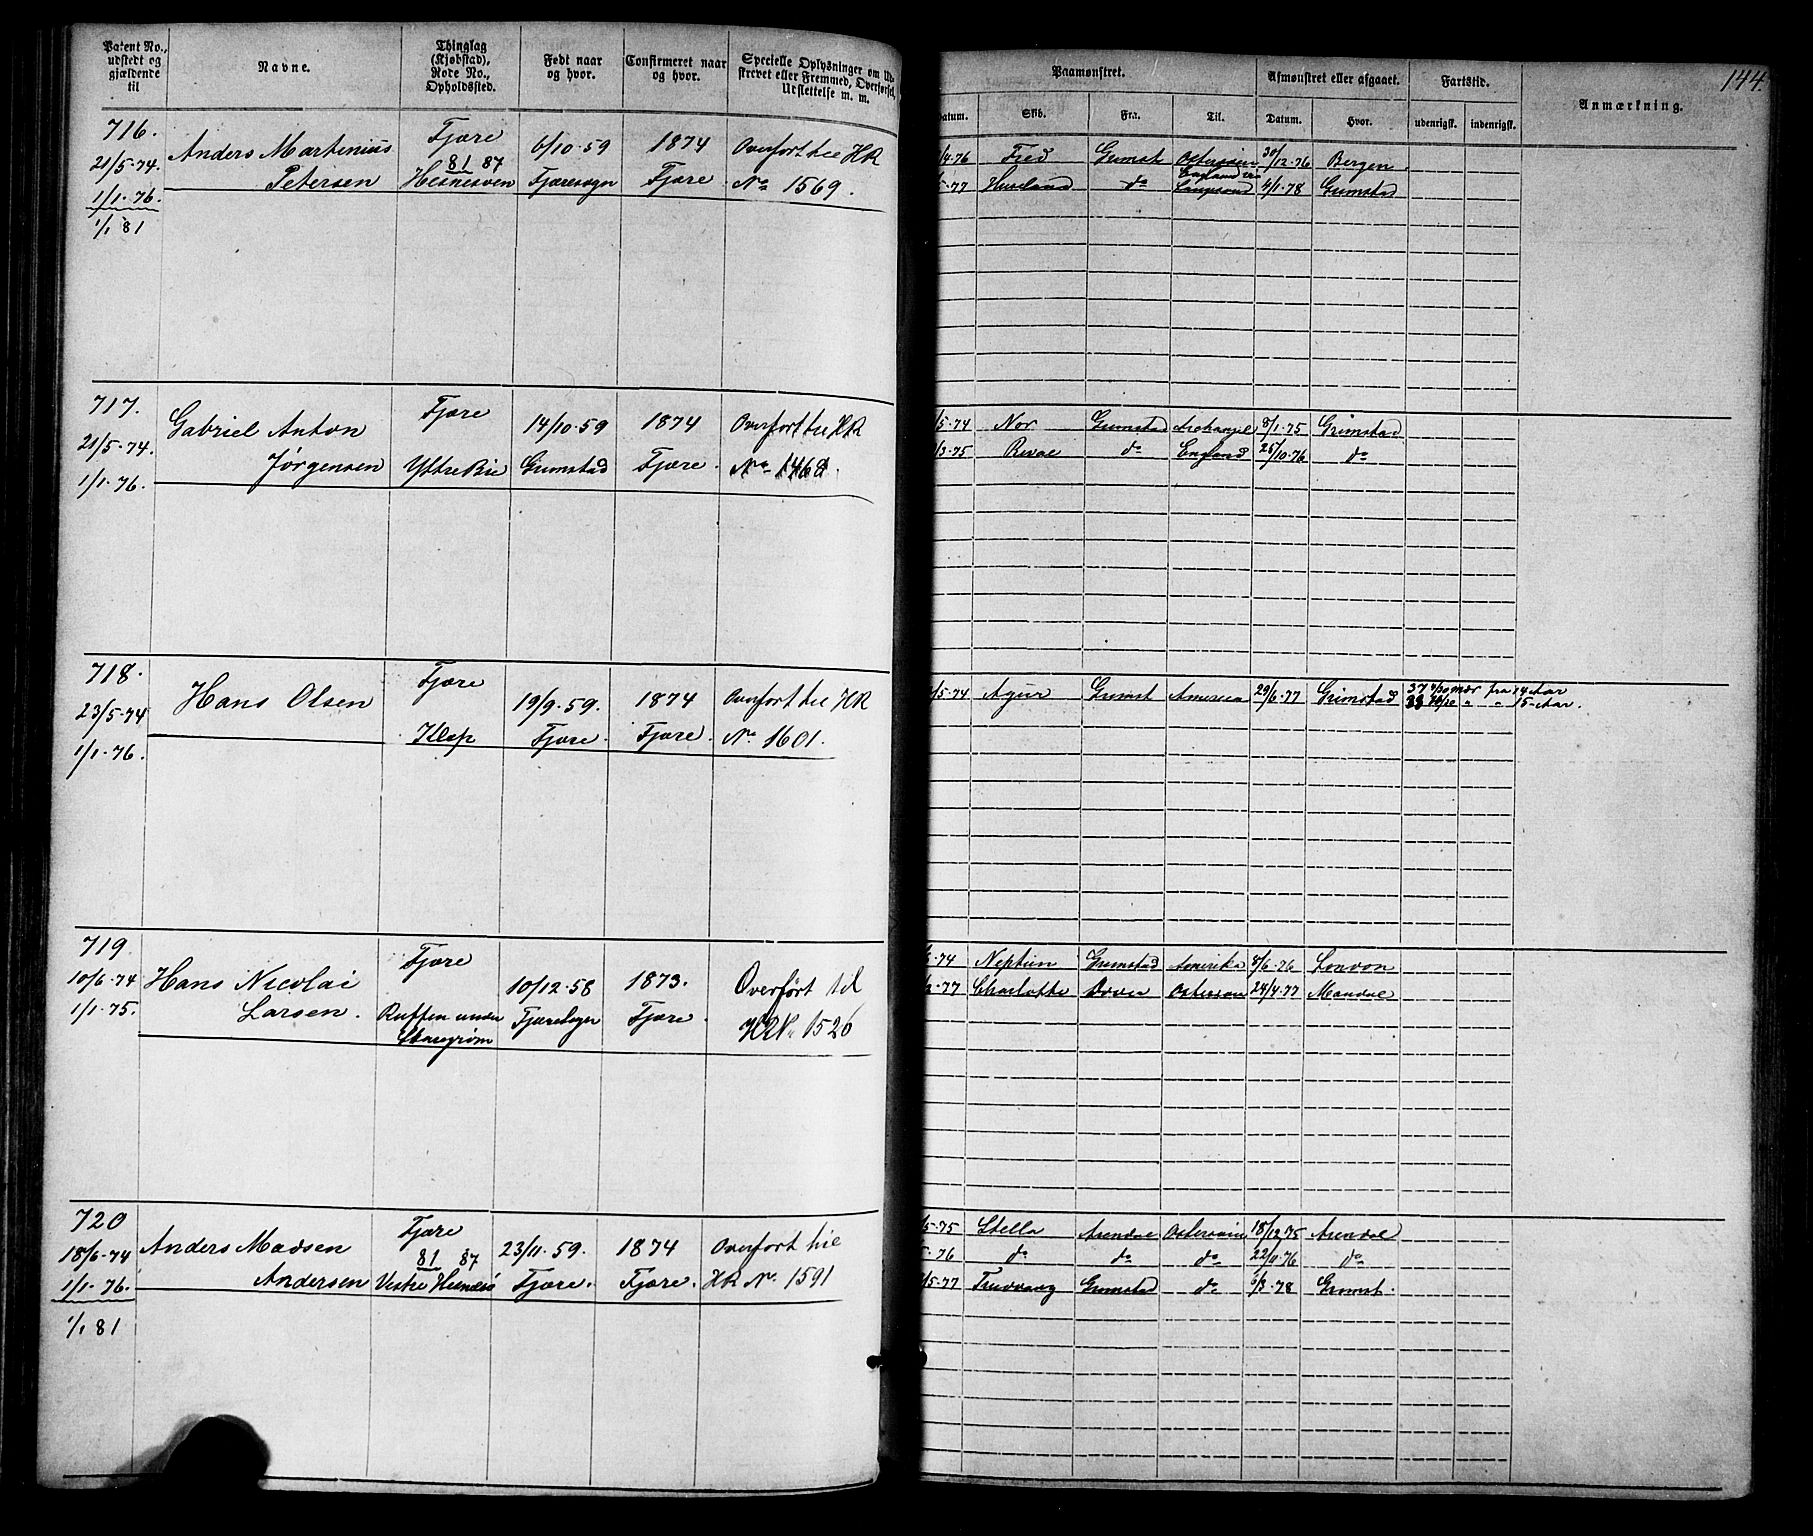 144.
Patent No., udstedt og gjældende til
Navne.
Thinglag (Kjøbstad), Rode No., Opholdssted.
Født naar og hvor.
Confirmeret naar og hvor.
Specielle Oplysninger om Udskrevet eller Fremmed, Overførsel, Udslettelse m. m.
Paamønstret.
Datum. Skib. Fra. Til.
Afmønstret eller afgaaet.
Datum. Hvor.
Fartstid.
udenrigsk. indenrigsk.
Anmærkning.
716. Anders Martinius Fjære 6/10-59 1874 Overført til HR
21/5-74. Petersen 81 87 Hesnesøen Fjæresogn Fjære No 1569.
1/1-76.
1/1 81
/4-76 Fred Grimst Østersøen 30/12-76 Bergen.
-77 Huseland do England 4/1-78 Grimstad
717. Gabriel Anton Fjære 14/10-59 1874 Overført til HR
21/5-74. Jørgensen Ytre Bie Grimstad Fjære. No 1468.
1/1-76.
/5-74 Nor Grimstad Archangel 8/1-75 Grimstad
/3-75 do England 25/10-76 do
718. Hans Olsen Fjære 19/9-59. 1874 Overført til HR
23/5-74 Klep Fjære. Fjære. No 1601.
1/1-76.
/5-74 Agur Grimst America 29/6-77 Grimstad 37 mdr fra 14 Aar
" " 15-Aar.
719. Hans Nicolai Fjære 10/12-58 1873. Overført til
10/6-74 Larsen. Ruften under Fjæresogn Fjære. HR No 1526
1/1-75.
-74 Neptun Grimstad Amerika 8/6-76 London
-77 Charlotte Dover Østersøen 24/4-77 Mandal
720 Anders Madsen Fjære 23/11-59. 1874 Overført til
18/6-74 Andersen 81 87 Vestre Hesnesø Fjære. Fjære. HR No. 1591
1/1-76.
1/1 81
/5-75 Stella Arendal Østersøen 18/12 75 Arendal
-76 do do do 22/11-76 do
/5-77 Trudvang Grimstad do /3-78 Grimst.